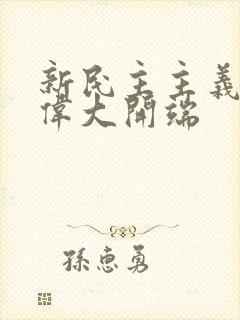 新民主主義
偉大開端
孫惠勇